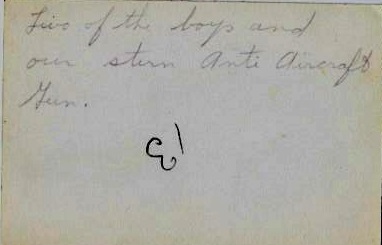 Two of the boys and
our stern Anti Aircraft
Gun.